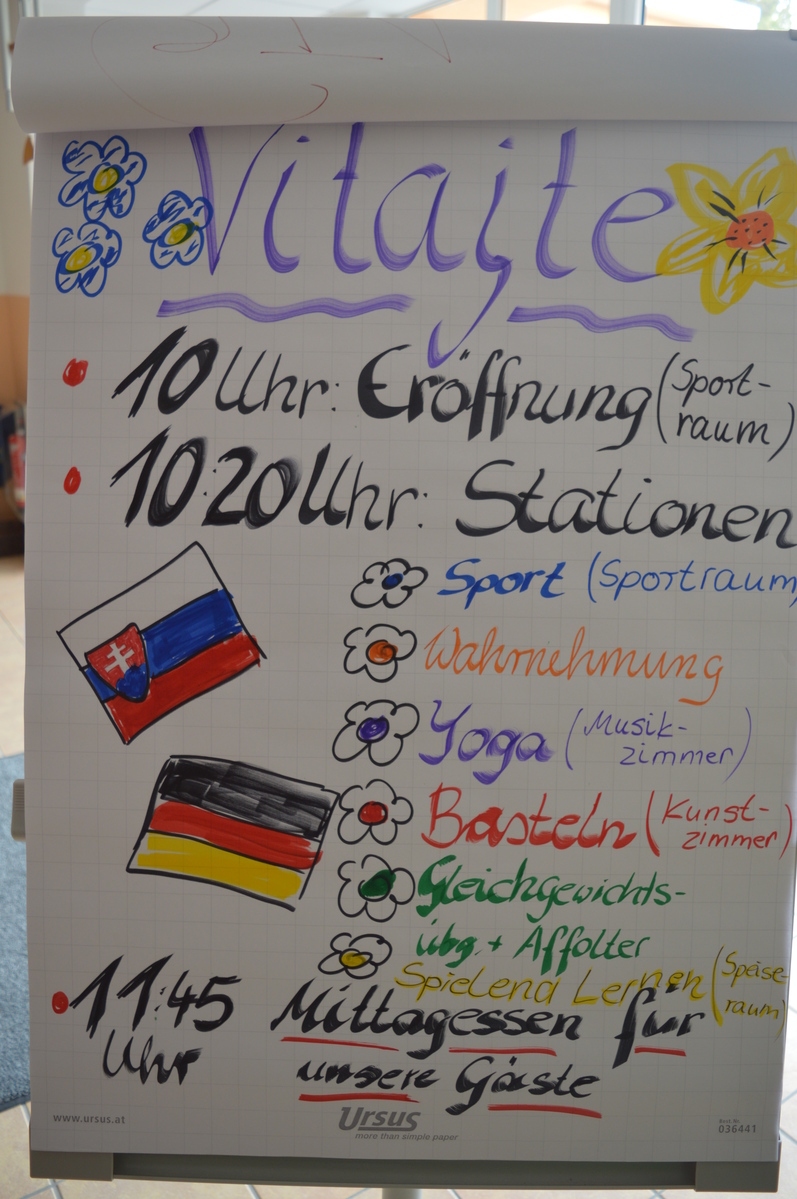 Vitajte
10 Uhr: Eröffnung (Sport-
raum)
10:20 Uhr: Stationen
Sport (Sportraum)
Wahrnehmung
Yoga (Musik-
zimmer)
Basteln (Kunst-
zimmer)
Gleichgewichts-
übg. + Affolter
Spielend Lernen (Speise-
raum)
11:45 Mittagessen für
Uhr unsere Gäste
www.ursus.at
Ursus
more than simple paper
Best.Nr.
036441